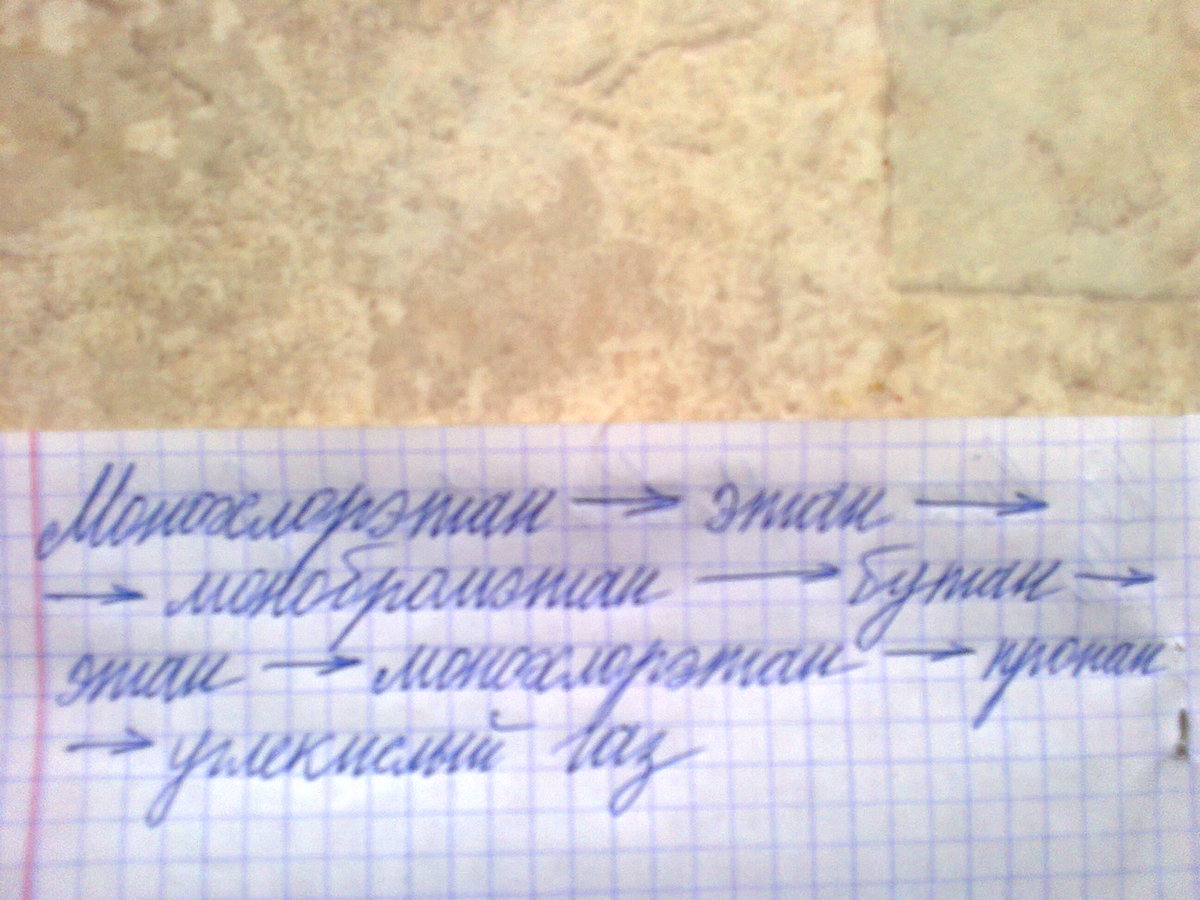 Монохлорэтан → этан →
→ монобромэтан → бутан →
этан → монохлорэтан → пропан
→ углекислый газ